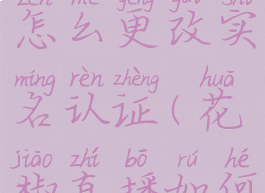 zěn me gēng gǎi shí
怎么更改实
míng rèn zhèng huā
名认证(花
jiāo zhí bō rú hé
椒直播如何